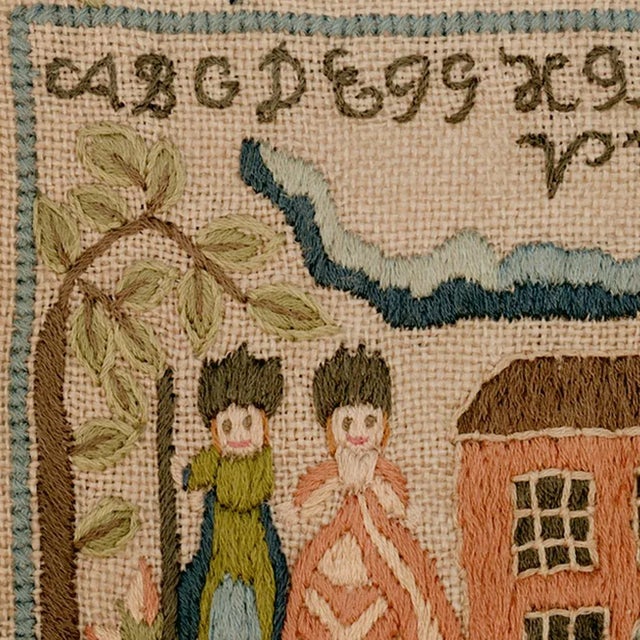 A B C D E F G H I
V